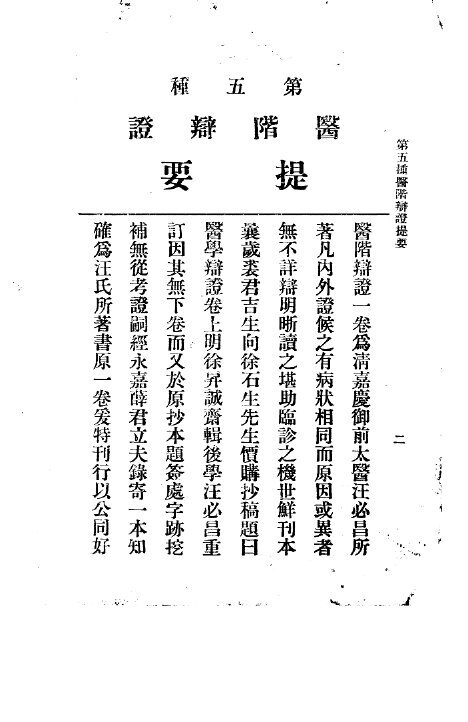 第五種
醫階辯證
提要
醫階辯證一卷爲清嘉慶御前太醫汪必昌所
著凡內外證候之有病狀相同而原因或異者
無不詳辯明晰讀之堪助臨診之機世鮮刊本
曩歲裘君吉生向徐石生先生價購抄稿題曰
醫學辯證卷上明徐昇誠齋輯後學汪必昌重
訂因其無下卷而又於原抄本題簽處字跡挖
補無從考證嗣經永嘉薛君立夫錄寄一本知
確爲汪氏所著書原一卷爰特刊行以公同好
第五種醫階辯證提要
二